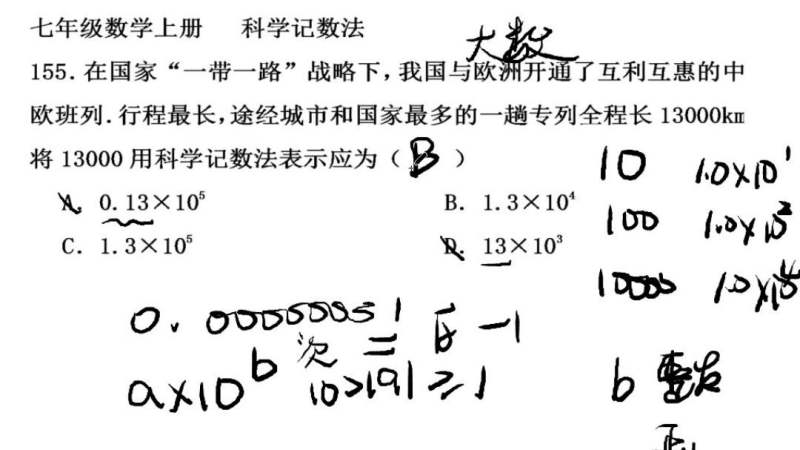 七年级数学上册 科学记数法
大数
155. 在国家“一带一路”战略下,我国与欧洲开通了互利互惠的中
欧班列.行程最长,途经城市和国家最多的一趟专列全程长 13000km
将 13000 用科学记数法表示应为( B )
A. 0.13×10⁵ B. 1.3×10⁴
C. 1.3×10⁵ D. 13×10³
10 1.0×10¹
100 1.0×10²
10000 1.0×10⁴
次 = -1
a×10ᵇ 10>|a|≥1 b 整数